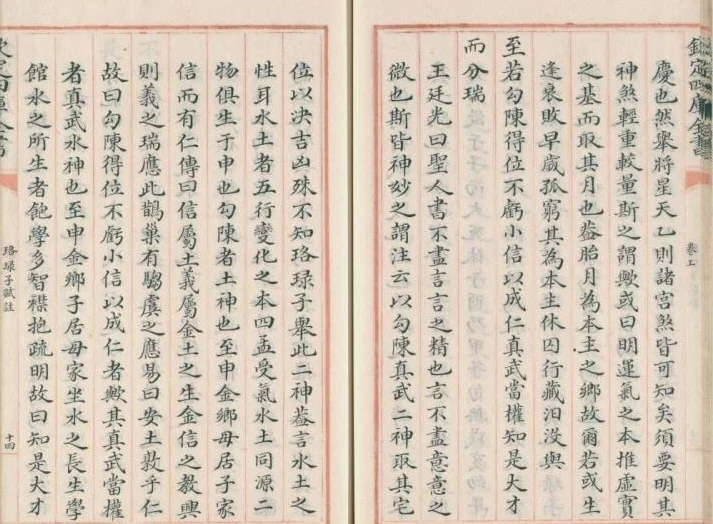 慶也然舉將星天乙則諸宮煞皆可知矣須要明其
神煞輕重較量斯之謂歟或曰明運氣之本推虛實
之基而取其月也蓋胎月為本主之鄉故爾若或生
逢衰敗早歲孤窮其為本主休囚行藏汨沒與
至若勾陳得位不虧小信以成仁真武當權知是大才
而分瑞
王廷光曰聖人書不盡言言之精也言不盡意意之
微也斯皆神妙之謂注云以勾陳真武二神取其宅
位以決吉凶殊不知珞琭子舉此二神蓋言水土之
性耳水土者五行變化之本四孟受氣水土同源二
物俱生于申也勾陳者土神也至申金鄉母居子家
信而有仁傳曰信屬土義屬金土之生金信之教興
則義之瑞應此鵲巢有騶虞之應易曰安土敦乎仁
故曰勾陳得位不虧小信以成仁者歟其真武當權
者真武水神也至申金鄉子居母家坐水之長生學
館水之所生者飽學多智襟抱疏明故曰知是大才
欽定四庫全書
卷上
珞琭子賦註
十四